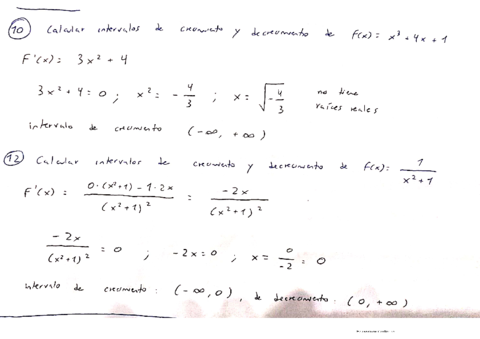 10 Calcular intervalos de crecimiento y decrecimiento de f(x) = x³ + 4x + 1
F'(x): 3x² + 4
3x² + 4 = 0 ; x² = -4/3 ; x = √(-4/3) no tiene raíces reales
intervalo de crecimiento (-∞, +∞)
12 Calcular intervalos de crecimiento y decrecimiento de f(x) = 1/(x² + 1)
F'(x) : (0·(x²+1) - 1·2x)/(x²+1)² = -2x/(x²+1)²
-2x/(x²+1)² = 0 ; -2x = 0 ; x = 0/-2 = 0
intervalo de crecimiento : (-∞, 0), de decrecimiento : (0, +∞)